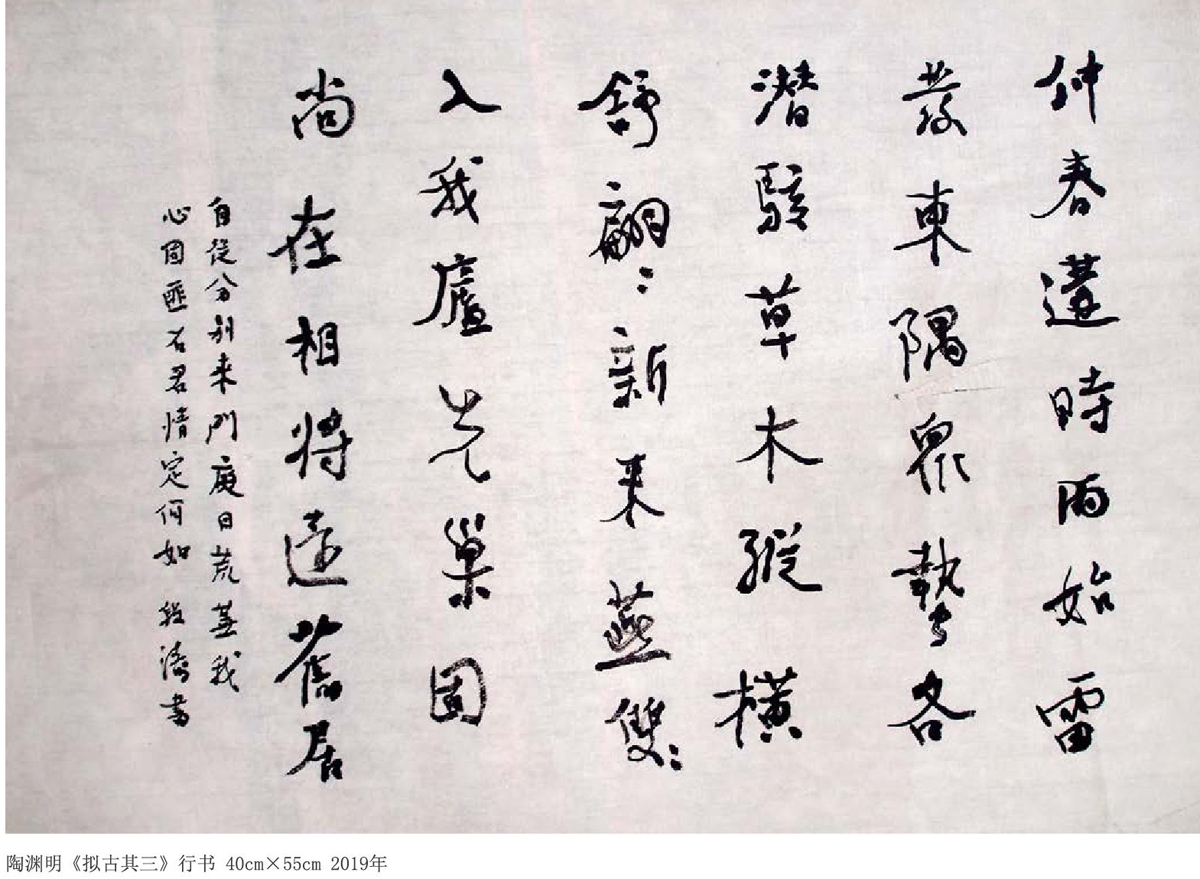 仲春遘時雨始雷
發東隅眾蟄各
潛駭草木縱橫
舒翩〻新來燕雙〻
入我廬先巢固
尚在相將還舊居
自從分別來門庭日荒蕪我
心固匪石君情定何如 段濤書
陶渊明《拟古其三》行书 40cm×55cm 2019年